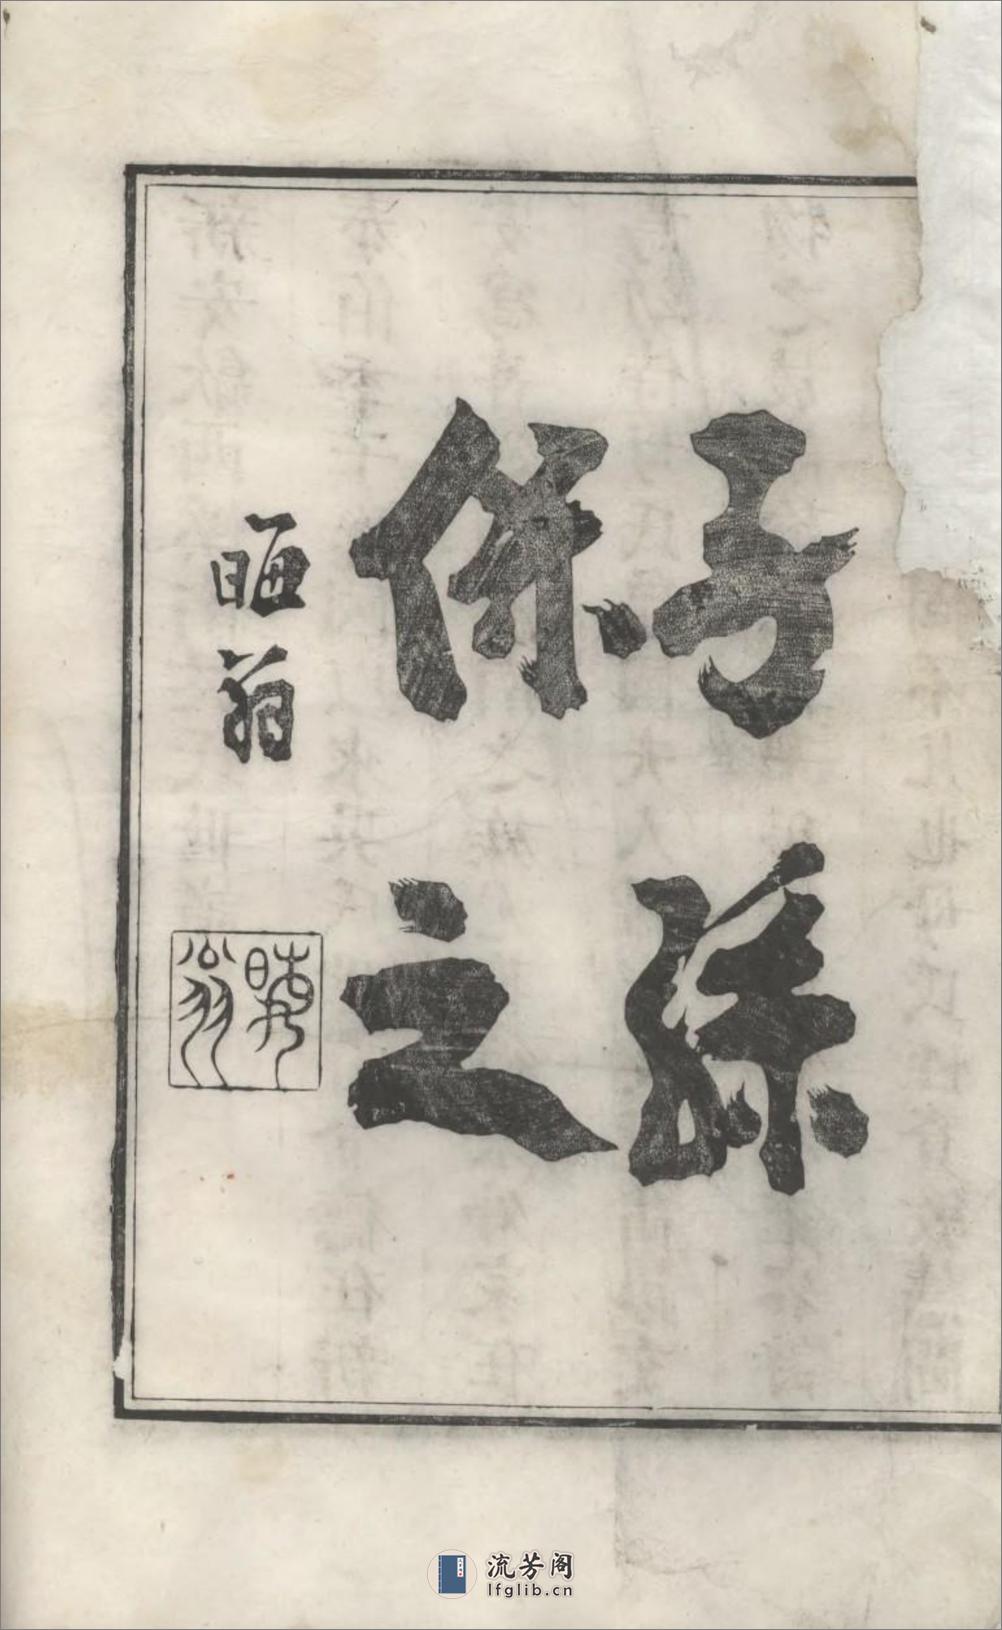 子孫
保之
晦翁
晦翁
流芳阁
lfglib.cn